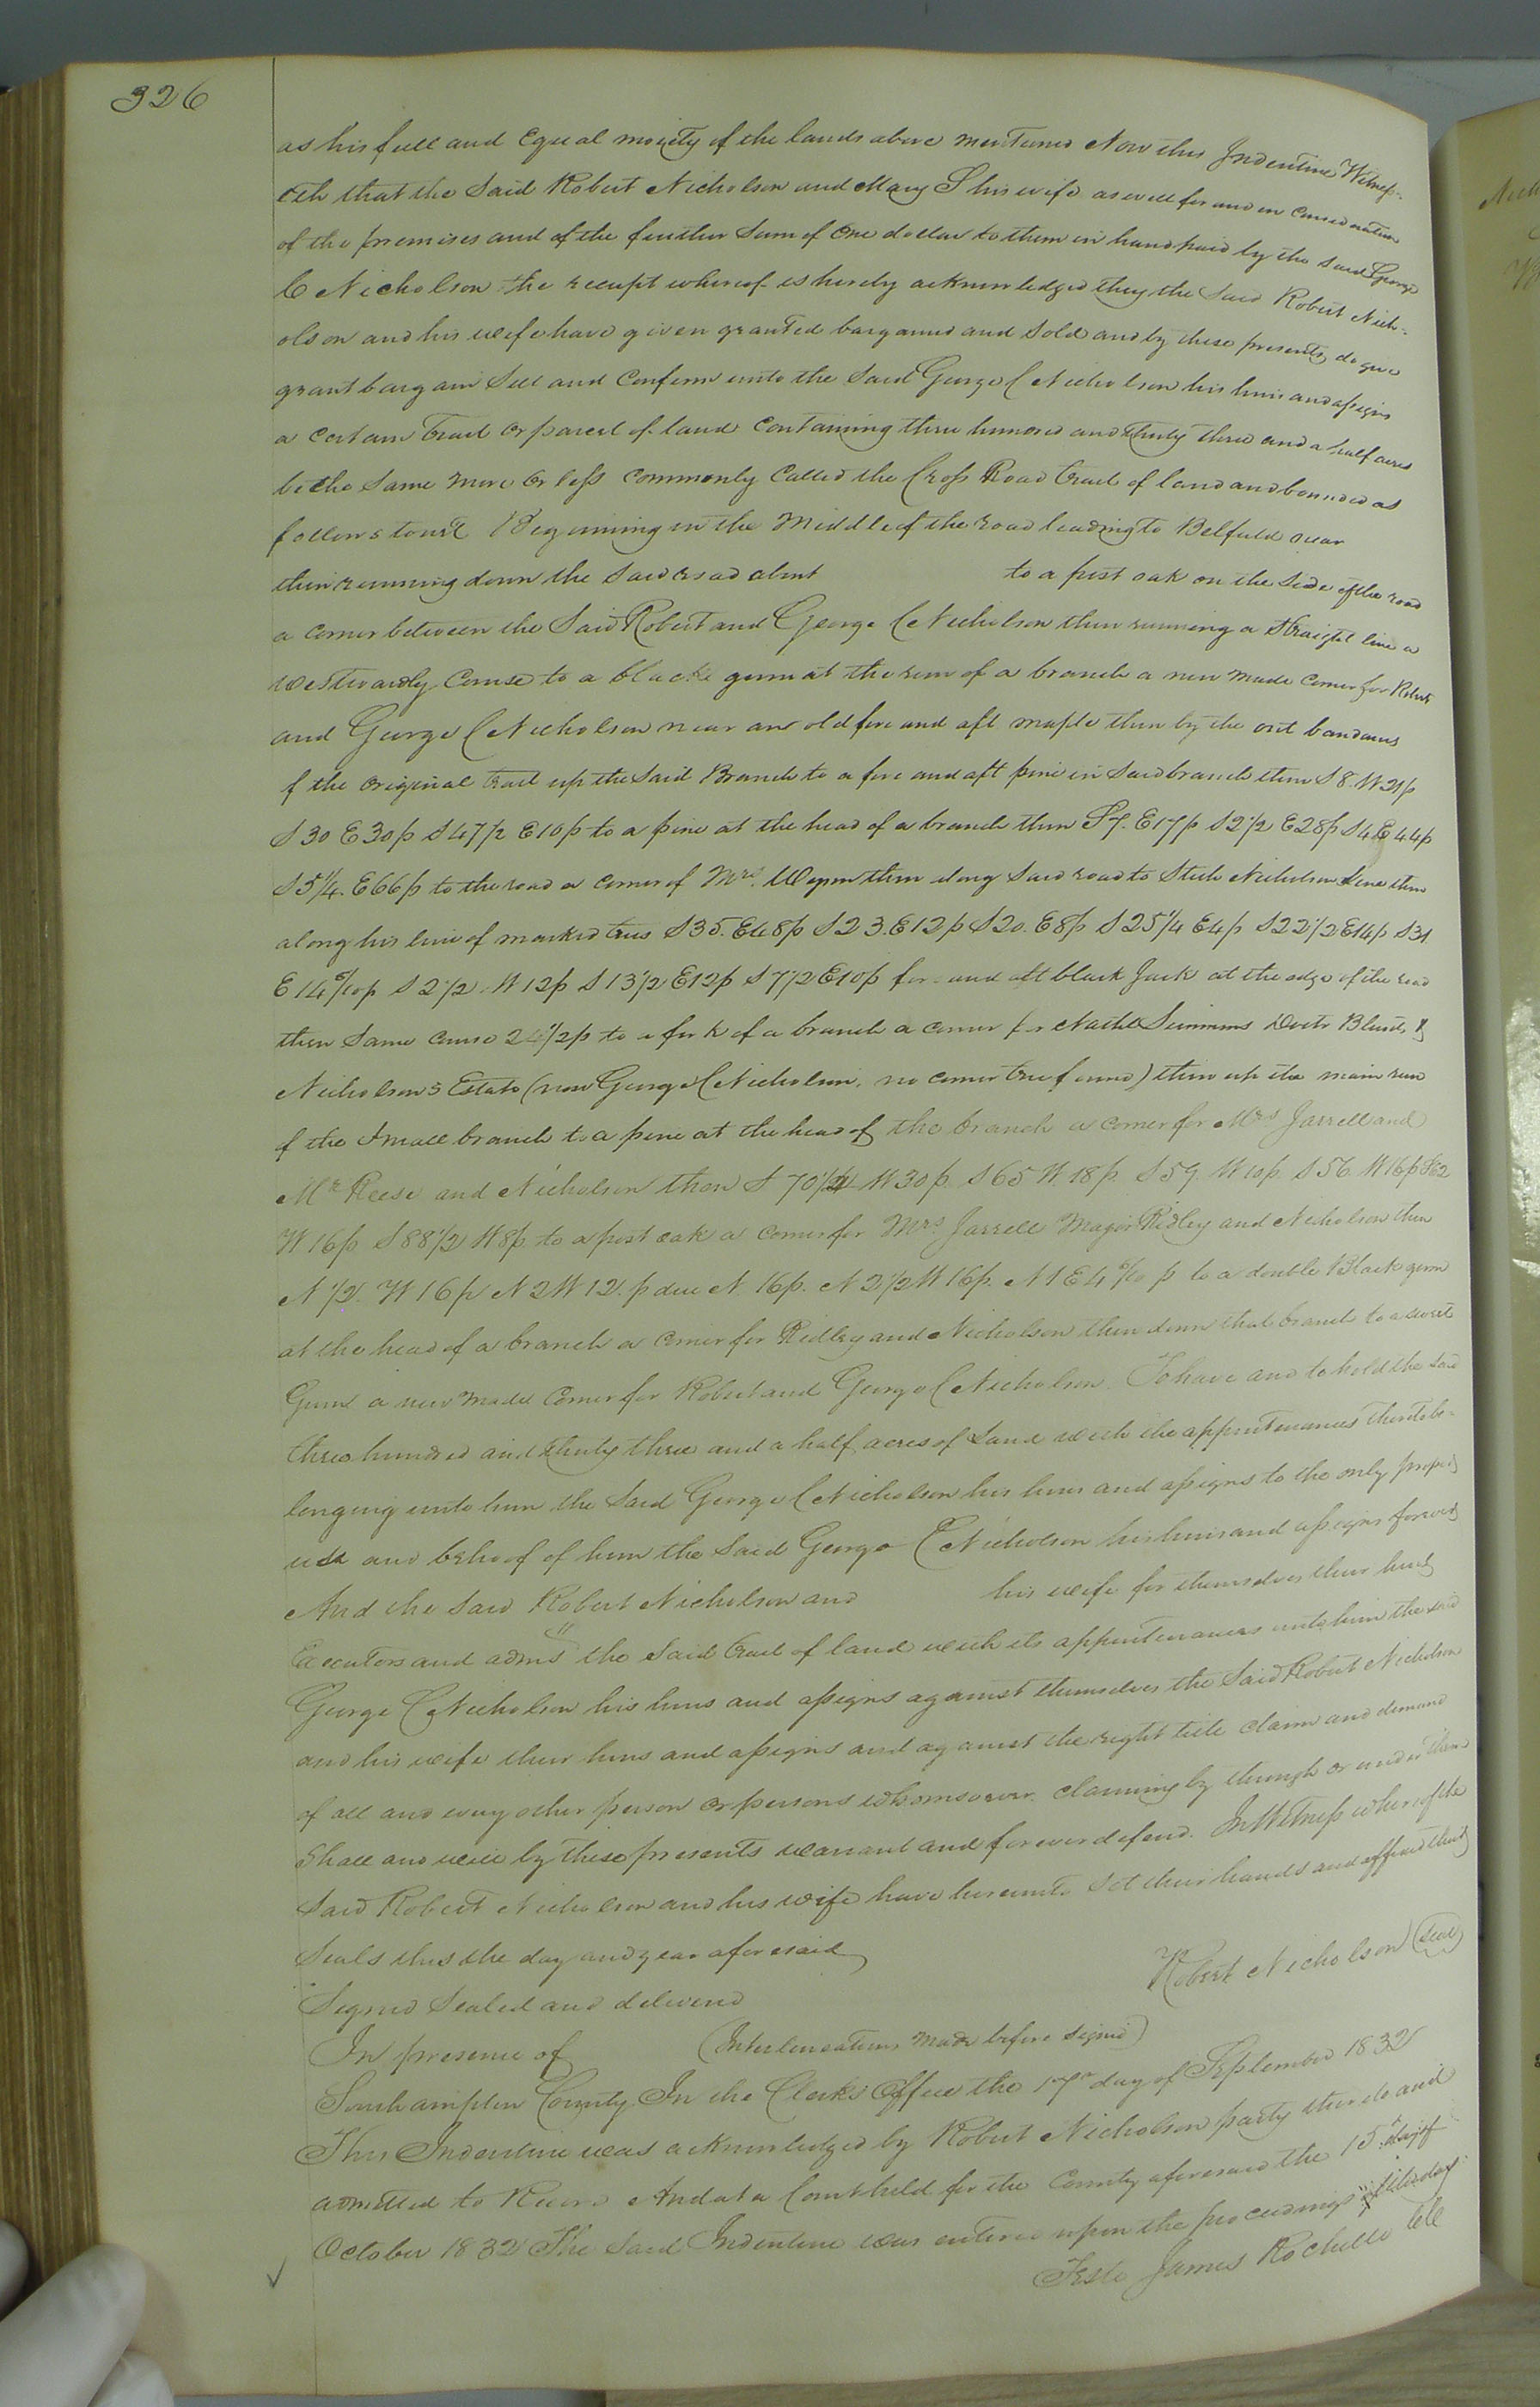 326
as his full and Equal moiety of the lands above mentioned Now this Indenture Witness-
eth that the Said Robert Nicholson and Mary S his wife as well for and in consideration
of the premises and of the further Sum of One dollar to them in hand paid by the said George
C Nicholson the receipt whereof is hereby acknowledged they the Said Robert Nich-
olson and his wife have given granted bargained and Sold and by these presents, do give
grant bargain Sell and Confirm unto the Said George C Nicholson his heirs and assigns
a certain tract or parcel of land Containing three hundred and thirty three and a half acres
be the Same more or less Commonly Called the Cross Road tract of land and bounded as
follows to wit Beginning in the Middle of the road leading to Belfield near
then running down the Said road about to a post oak on the Side of the road
a corner between the Said Robert and George C Nicholson then running a Straight line a
westwardly Course to a black gum at the run of a branch a new made corner for Robert
and George C Nicholson near an old fore and aft maple then by the out boundaries
f the original tract up the Said Branch to a fore and aft pine in Said branch then S 8. W 21p
S 30 E 30p S 47 1/2 E 10p to a pine at the head of a branch then S 7. E 17p S 2 1/2 E 28p S 4 E 44p
S 5 1/4. E 66p to the road a corner of Mrs. then along Said road to Nicholson line then
along his line of marked trees S 35. E 48p S 23. E 12p S 20. E 8p S 25 1/4 E 4p S 22 1/2 E 14p S 31
E 14 p S 2 1/2. W 12p S 13 1/2 E 12p S 7 1/2 E 10p fore and aft black Jack at the edge of the road
then Same course 24 1/2p to a fork of a branch a corner for Simmons Doctr &
Nicholsons Estate (now George C Nicholson, no corner tree found) then up the main run
of the Small branch to a pine at the head of the branch a corner for Mrs Jarrell and
Mr Reese and Nicholson then S 70 W 30p. S 65 W 18p. S 59. W 10p. S 56. W 16p S 62
W 16p. S 88 1/2 W 8p. to a post oak a corner for Mrs. Jarrell Major Ridley and Nicholson then
N 1/2. W 16p N 2 W 12.p due N 16p. N 2 1/2 W 16p. N 1 E 4 p to a double Black gum
at the head of a branch a corner for Ridley and Nicholson then down that branch to a sweet
Gum a new made Corner for Robert and George C Nicholson. To have and to hold the said
three hundred and thirty three and a half acres of Land with the appurtenances thereto be-
longing unto him the Said George C Nicholson his heirs and assigns to the only proper
use and behoof of him the Said George C Nicholson his heirs and assigns forever
And the Said Robert Nicholson and his wife for themselves their heirs
Executors and adms the Said tract of land with its appurtenances unto him the said
George C Nicholson his heirs and assigns against themselves the Said Robert Nicholson
and his wife their heirs and assigns and against the right title claim and demand
of all and every other person or persons whomsoever claiming by through or under them
Shall and will by these presents warrant and forever defend. In Witness whereof the
Said Robert Nicholson and his wife have hereunto Set their hands and affixed their
Seals this the day and year aforesaid
Robert Nicholson (Seal)
Signed Sealed and delivered
In presence of (Interlineations made before signed)
Southampton County In the Clerks Office the 17th day of September 1832
This Indenture was acknowledged by Robert Nicholson party thereto and
admitted to Record And at a Court held for the County aforesaid the 15th day of
October 1832 The Said Indenture was entered upon the proceedings of the day
Teste James Rochelle Clk